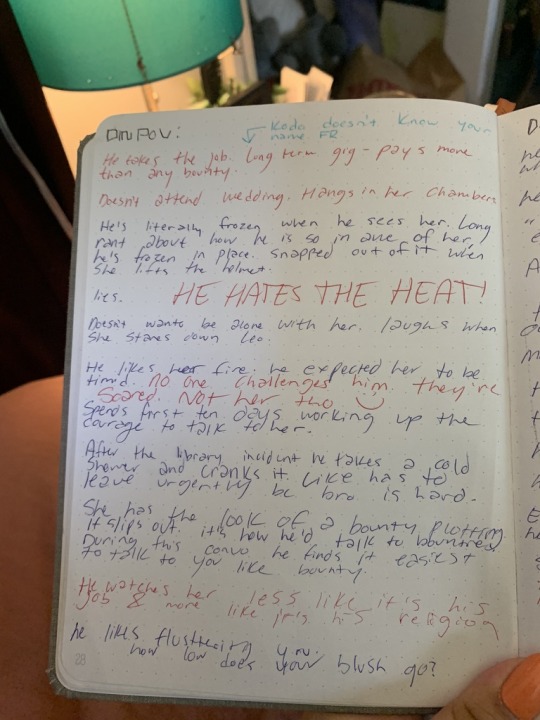 Din POV:
Koda doesn't know your
name FR
He takes the job. long term gig - pays more
than any bounty.
Doesn't attend wedding. Hangs in her chambers
He's literally frozen when he sees her. Long
rant about how he is so in awe of her,
he's frozen in place. snapped out of it when
she lifts the helmet.
lies.
HE HATES THE HEAT!
Doesn't wants be alone with her. laughs when
she stares down Leo.
He likes her fire. he expected her to be
timid. no one challenges him. they're
scared. Not her tho
Spends first ten days working up the
courage to talk to her.
After the library incident he takes a cold
shower and cranks it. Like has to
leave urgently bc bro is hard.
She has the look of a bounty plotting.
It slips out. it's how he'd talk to bounties
During this convo he finds it easiest
to talk to you like bounty.
He watches her less like it's his
job & more like it's his religion
he likes flustering you.
how low does your blush go?
28